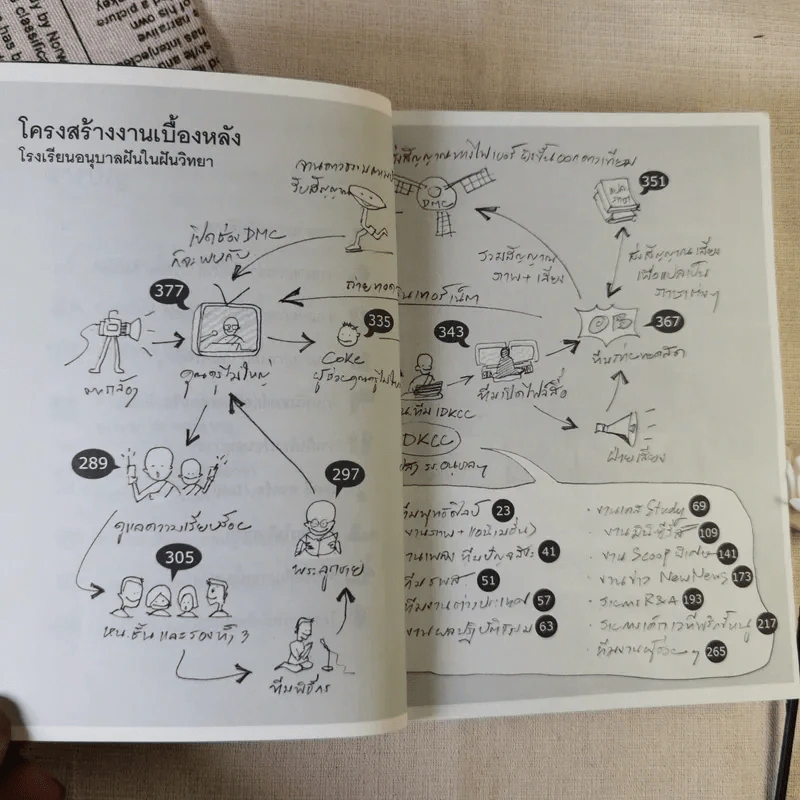 โครงสร้างงานเบื้องหลัง
โรงเรียนอนุบาลฝันในฝันวิทยา
รับสัญญาณ
เปิดช่อง DMC
ก็จะพบกับ
377
คุณครูไม่ใหญ่
335
Coke
ผู้ช่วยคุณครูไม่ใหญ่
289
ดูแลความเรียบร้อย
297
พระลูกชาย
305
หน.ชั้น และรองทั้ง 3
ทีมพิธีกร
ส่งสัญญาณทางไฟเบอร์
DMC
351
รวมสัญญาณ
ภาพ + เสียง
ส่งสัญญาณเสียง
เพื่อแปลเป็น
ภาษาต่างๆ
343
ทีมเปิดไฟล์สื่อ
OB
367
ทีมถ่ายทอดสด
ฝ่ายเสียง
ทีม IDKCC
DKCC
ทีมพุทธศิลป์ 23
งานภาพ + แอนิเมชั่น
งานเพลง 41
51
ทีมงานต่างประเทศ 57
งานผลปฏิบัติธรรม 63
· งานเคส Study 69
· งานมินิซีรี่ส์ 109
· งาน Scoop พิเศษ 141
· งานข่าว NowNews 173
· รายการ R&A 193
217
· ทีมงานผู้ช่วย ๆ 265